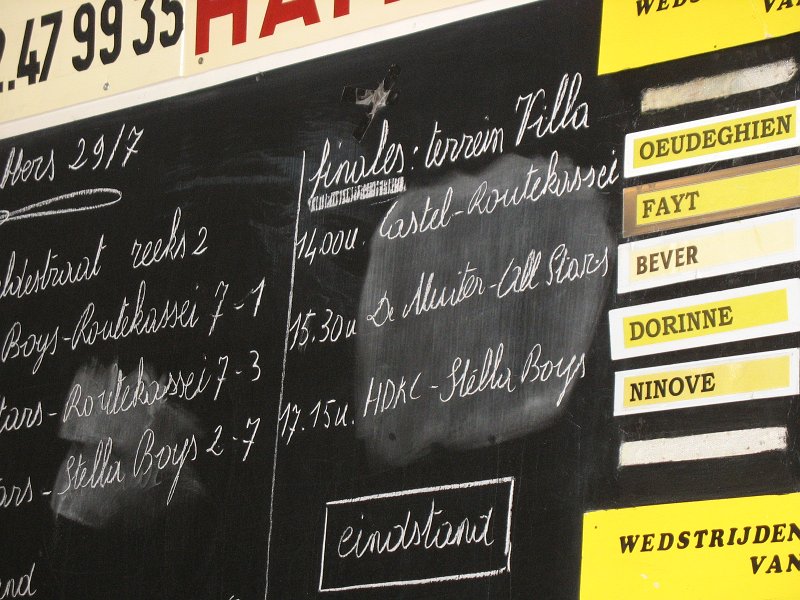 2.47 99 35
29/7
reeks 2
Boys-Routekassei 7-1
-Routekassei 7-3
-Stella Boys 2-7
finales: terrein Villa
14.00u. Castel-Routekassei
15.30u De Muiter-All Stars
17.15u. HDKC-Stella Boys
eindstand
WEDSTRIJDEN
OEUDEGHIEN
FAYT
BEVER
DORINNE
NINOVE
WEDSTRIJDEN
VAN